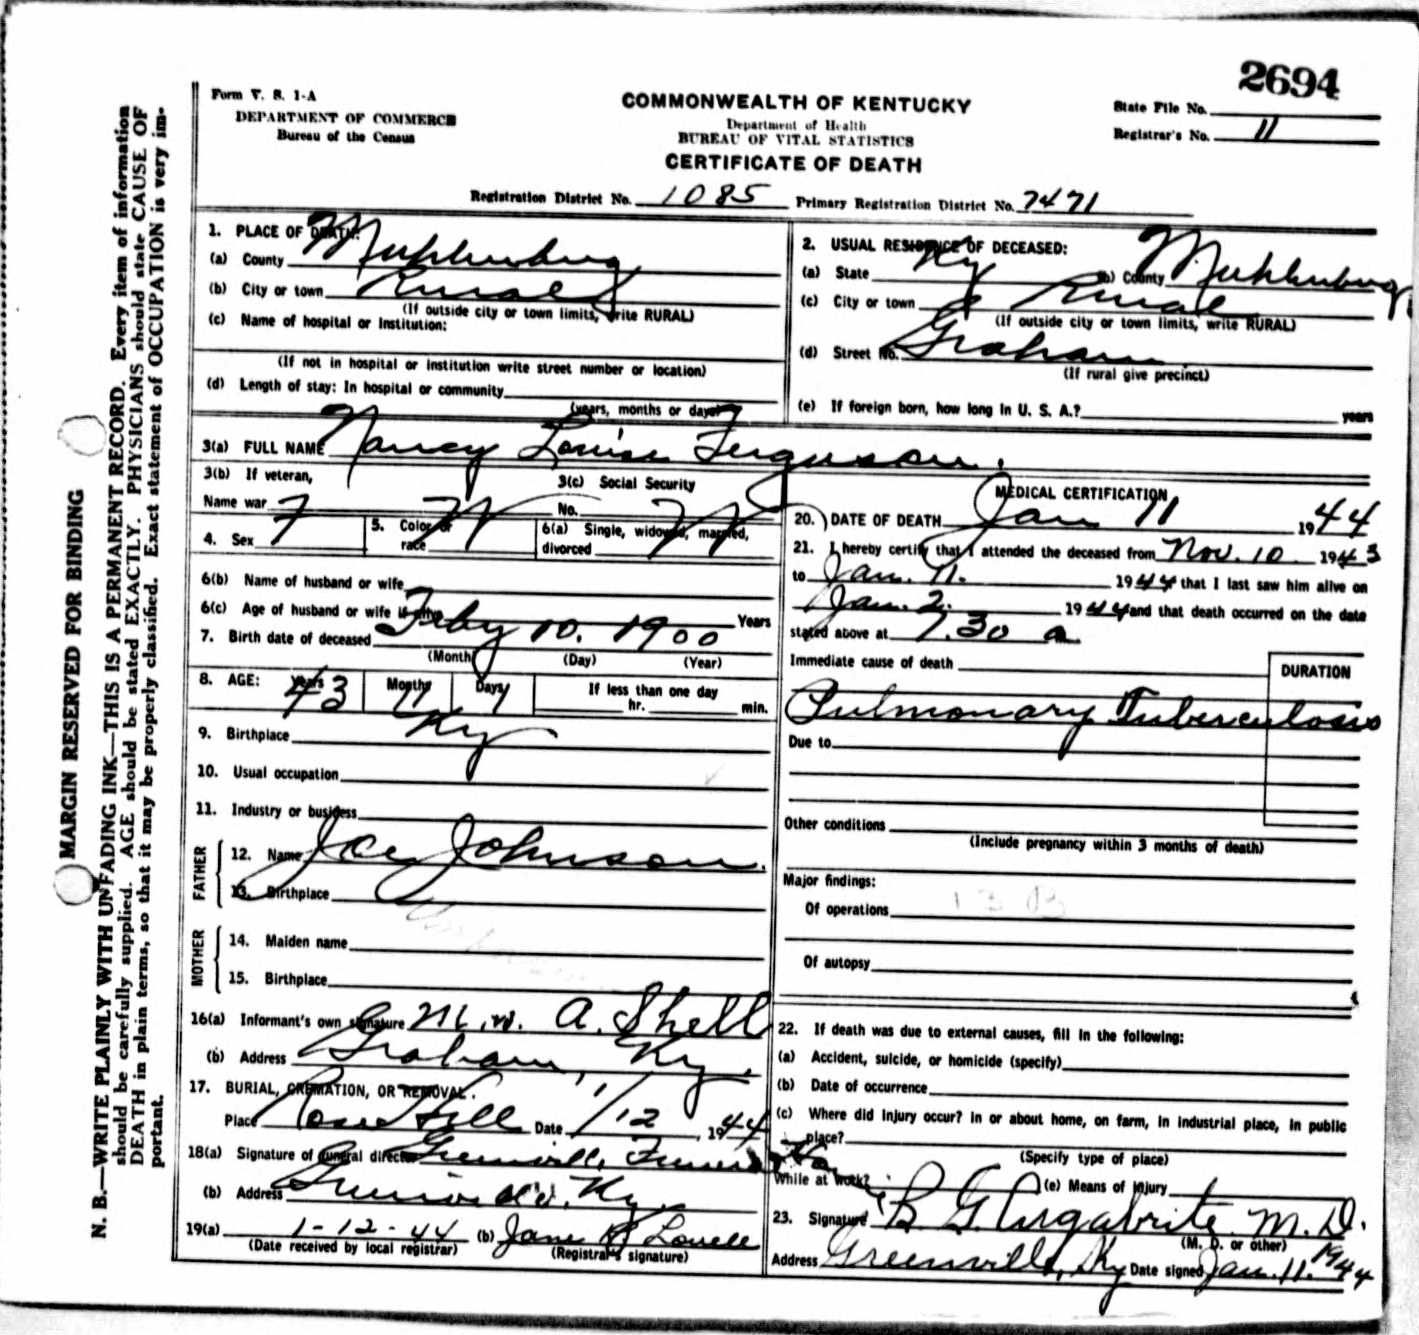 2694
Form V. S. 1-A
DEPARTMENT OF COMMERCE
Bureau of the Census
COMMONWEALTH OF KENTUCKY
Department of Health
BUREAU OF VITAL STATISTICS
CERTIFICATE OF DEATH
State File No.
Registrar's No. 11
Registration District No. 1085 Primary Registration District No. 7471
1. PLACE OF DEATH:
(a) County Muhlenburg
(b) City or town Rural
(If outside city or town limits, write RURAL)
(c) Name of hospital or institution:
(If not in hospital or institution write street number or location)
(d) Length of stay: In hospital or community
(years, months or days)
2. USUAL RESIDENCE OF DECEASED:
(a) State Ky (b) County Muhlenburg
(c) City or town Rural
(If outside city or town limits, write RURAL)
(d) Street No. Graham
(If rural give precinct)
(e) If foreign born, how long in U. S. A.? years
3(a) FULL NAME Nancy Louise Ferguson.
3(b) If veteran,
Name war
3(c) Social Security
No.
4. Sex F
5. Color or race W
6(a) Single, widowed, married, divorced W
6(b) Name of husband or wife
6(c) Age of husband or wife if alive Years
7. Birth date of deceased Feby 10. 1900
(Month) (Day) (Year)
8. AGE: Years 43 Months 11 Days 1 If less than one day
hr. min.
9. Birthplace Ky
10. Usual occupation
11. Industry or business
FATHER
12. Name Joe Johnson.
13. Birthplace
MOTHER
14. Maiden name
15. Birthplace
16(a) Informant's own signature A. Shell
(b) Address Graham, Ky.
17. BURIAL, CREMATION, OR REMOVAL.
Place Rose Hill Date 1/12, 1944
18(a) Signature of funeral director Greenville Funeral Home
(b) Address Greenville, Ky.
19(a) 1-12-44 (b) Jane R Lovell
(Date received by local registrar) (Registrar's signature)
MEDICAL CERTIFICATION
20. DATE OF DEATH Jan 11 1944
21. I hereby certify that I attended the deceased from Nov. 10 1943
to Jan. 11. 1944 that I last saw him alive on
Jan. 2. 1944 and that death occurred on the date
stated above at 7.30 a m.
Immediate cause of death
DURATION
Pulmonary Tuberculosis
Due to
Other conditions
(Include pregnancy within 3 months of death)
Major findings:
Of operations
Of autopsy
22. If death was due to external causes, fill in the following:
(a) Accident, suicide, or homicide (specify)
(b) Date of occurrence
(c) Where did injury occur? In or about home, on farm, in industrial place, in public
place?
(Specify type of place)
While at work? (e) Means of injury
23. Signature B G Argabrite M. D.
(M. D. or other)
Address Greenville, Ky Date signed Jan. 11. 1944
MARGIN RESERVED FOR BINDING
N. B.—WRITE PLAINLY WITH UNFADING INK—THIS IS A PERMANENT RECORD. Every item of information
should be carefully supplied. AGE should be stated EXACTLY. PHYSICIANS should state CAUSE OF
DEATH in plain terms, so that it may be properly classified. Exact statement of OCCUPATION is very im-
portant.